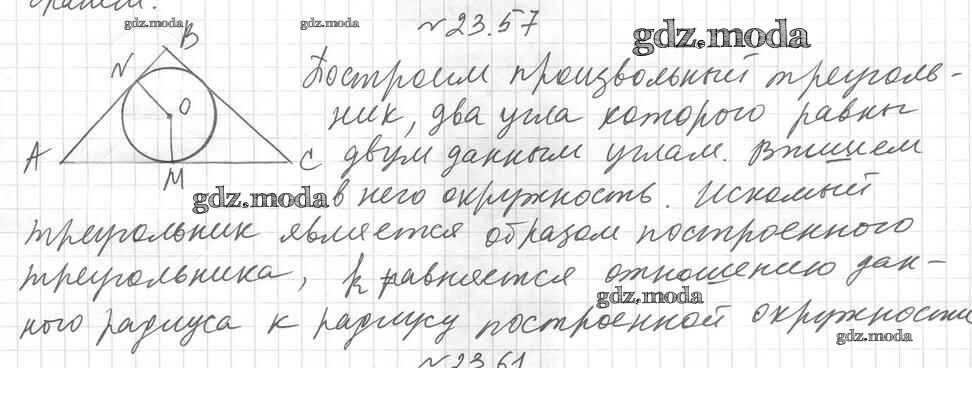 №23.57
gdz.moda gdz.moda gdz.moda
B
N
Построим произвольный треуголь-
O
ник, два угла которого равны
A C двум данным углам. Впишием
M
gdz.moda в него окружность. Искомый
треугольник является образом построенного
треугольника, k равняется отношению дан-
gdz.moda
ного радиуса к радиусу построенной окружности
gdz.moda
№23.61